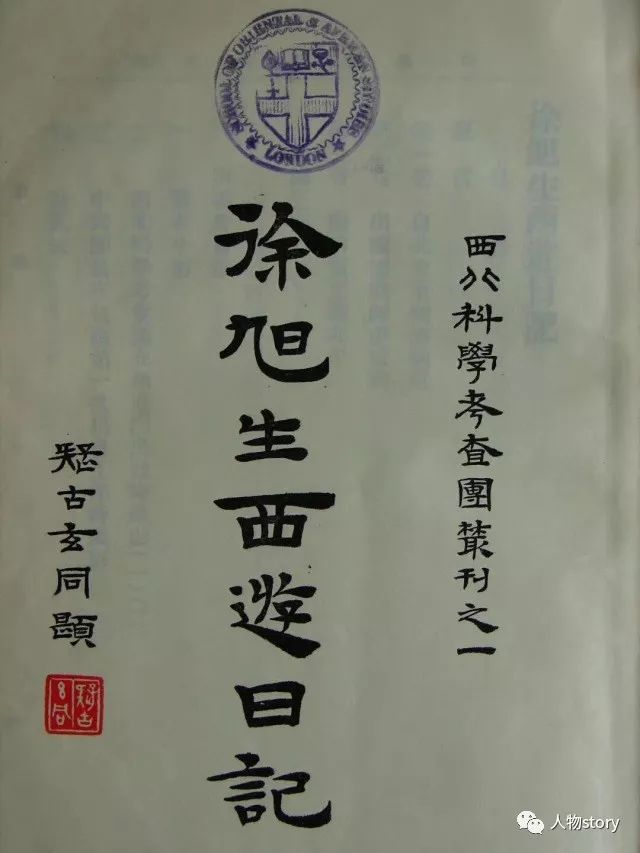 SCHOOL OF ORIENTAL & AFRICAN STUDIES
LONDON
西北科學考查團叢刊之一
徐旭生西遊日記
疑古玄同題
人物story